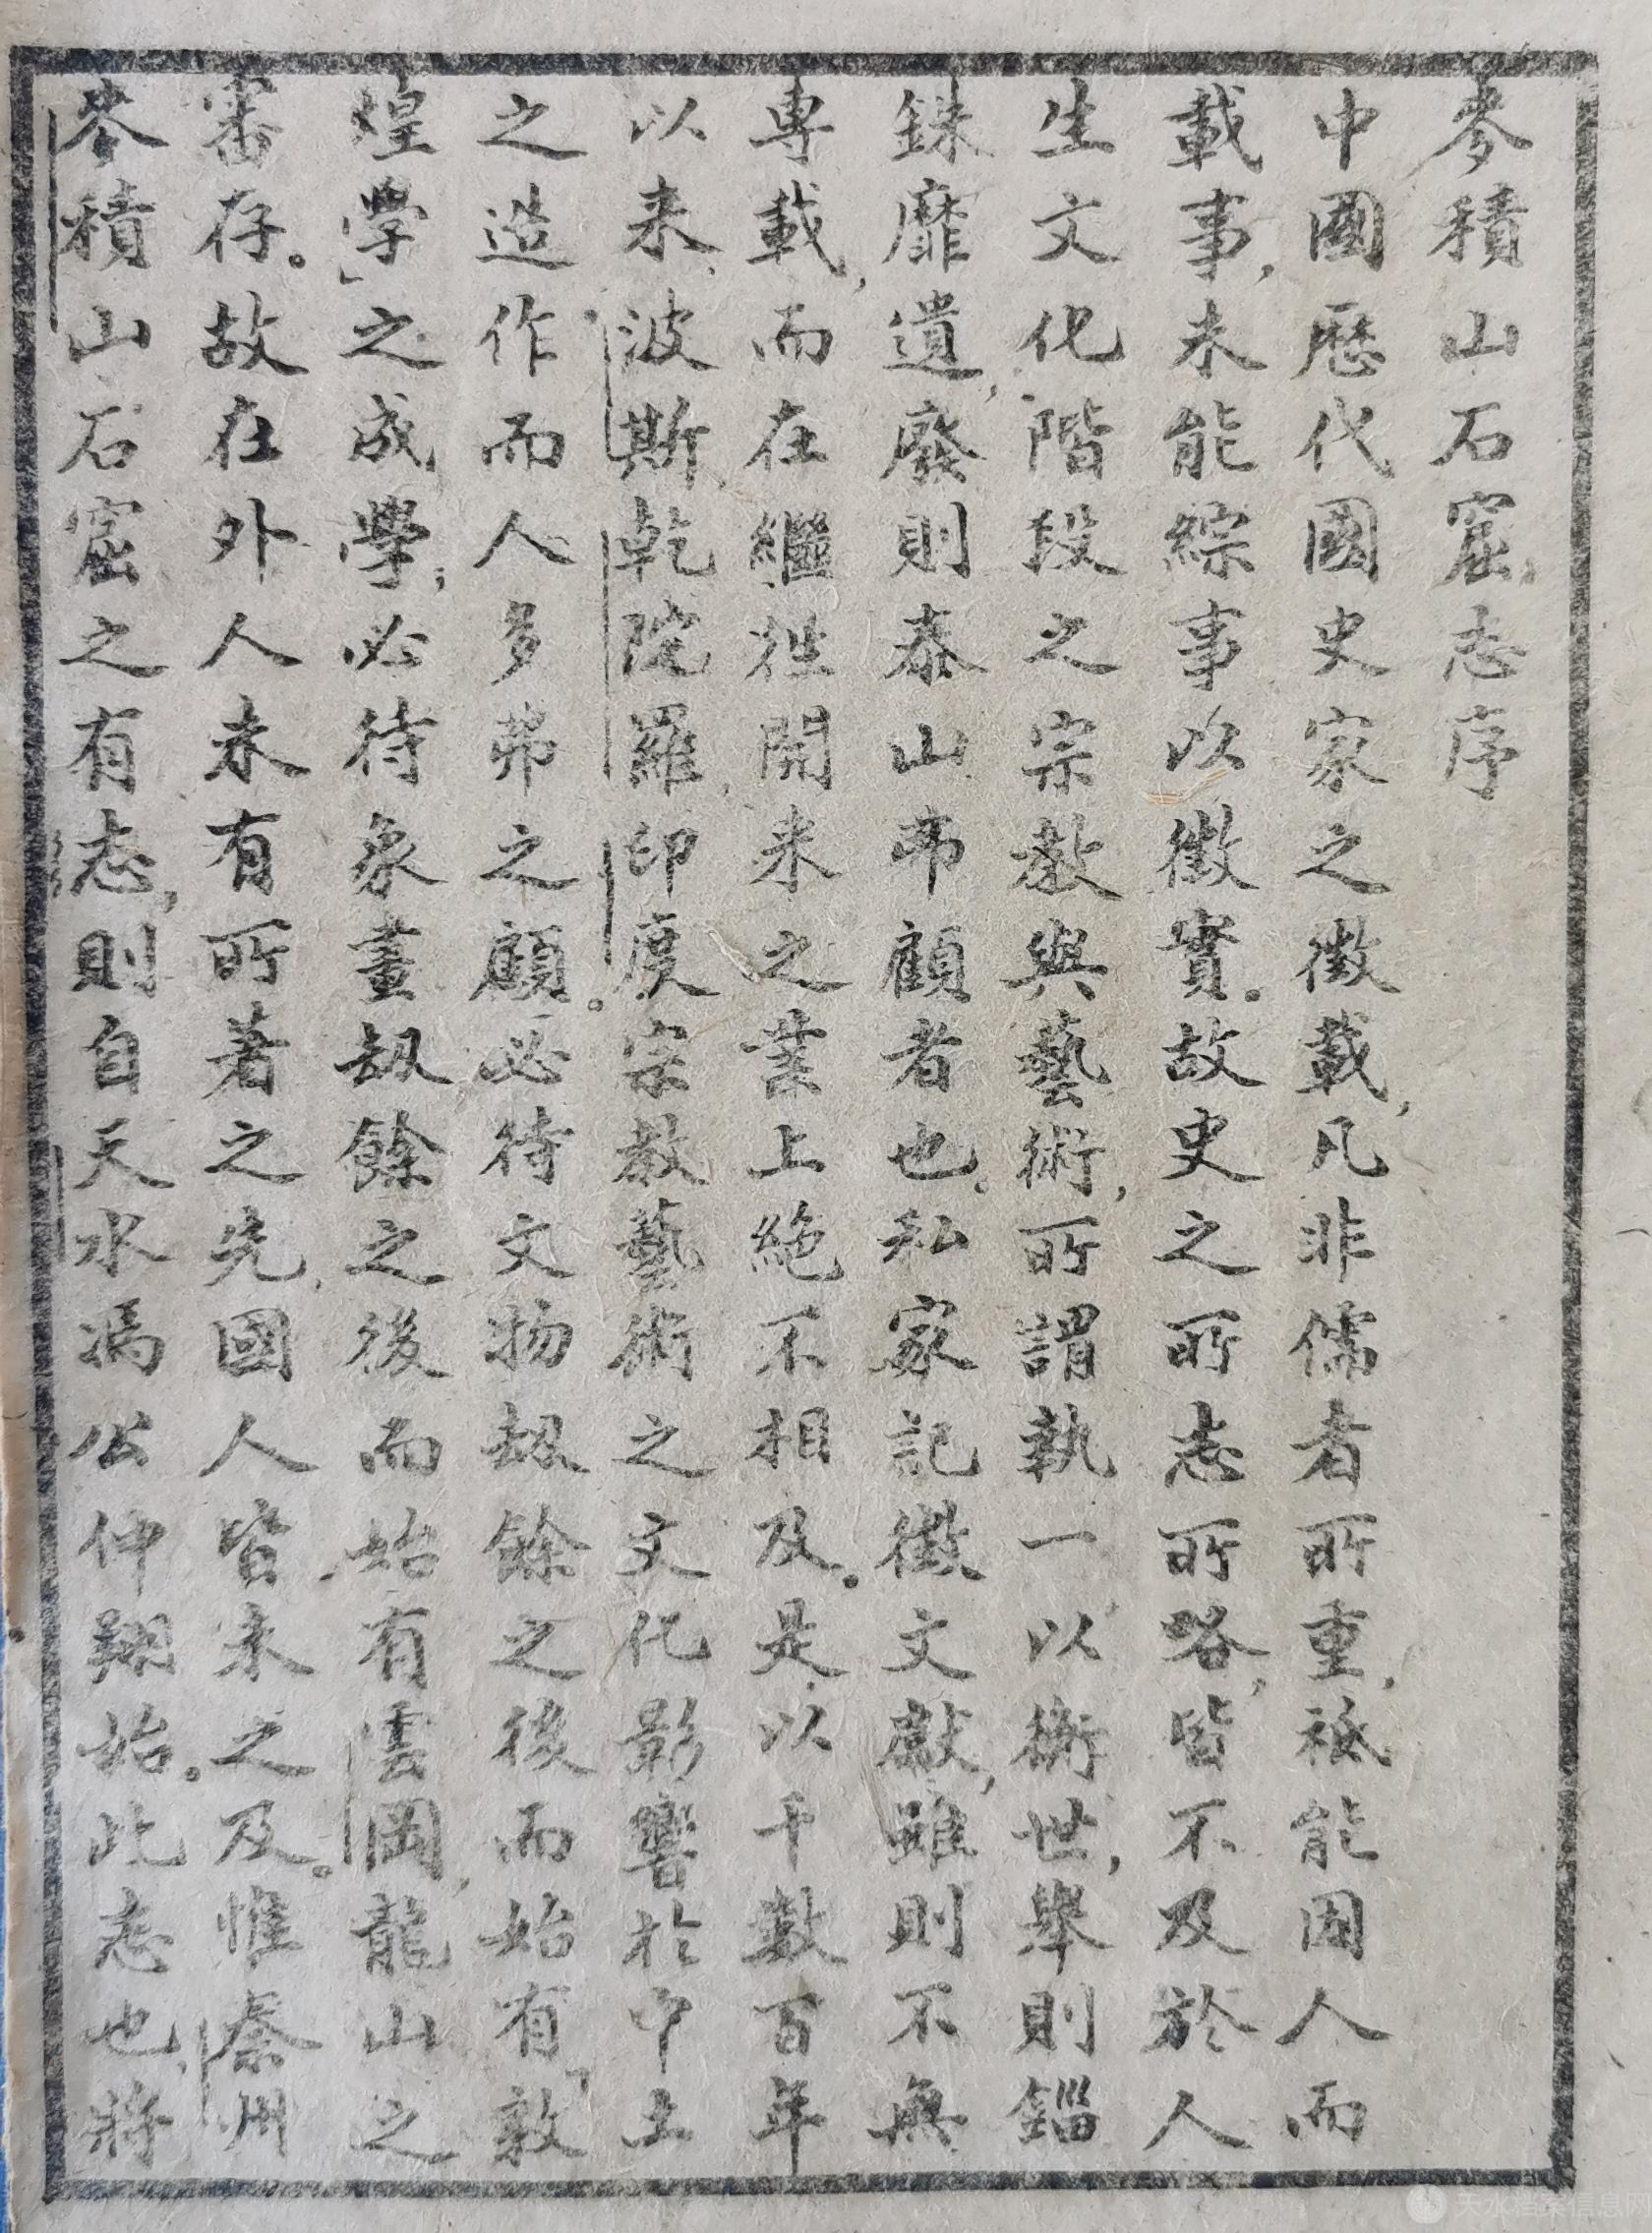 麥積山石窟志序
中國歷代國史家之徵載,凡非儒者所重,祗能因人而
載事,未能綜事以徵實。故史之所志所略,皆不及於人
生文化階段之宗教與藝術,所謂執一以衡世,舉則錙
銖靡遺,廢則泰山弗顧者也。私家記徵文獻,雖則不無
專載,而在繼往開来之業上絕不相及。是以千數百年
以来,波斯,乾陀羅,印度宗教藝術之文化影響於中土
之造作而人多弗之顧。必待文物劫餘之後而始有「敦
煌學」之成學;必待象畫劫餘之後而始有雲岡,龍山之
審存。故在外人未有所著之先,國人皆未之及。惟秦州
麥積山石窟之有志,則自天水馮公仲翔始。此志也,將
天水檔案信息网